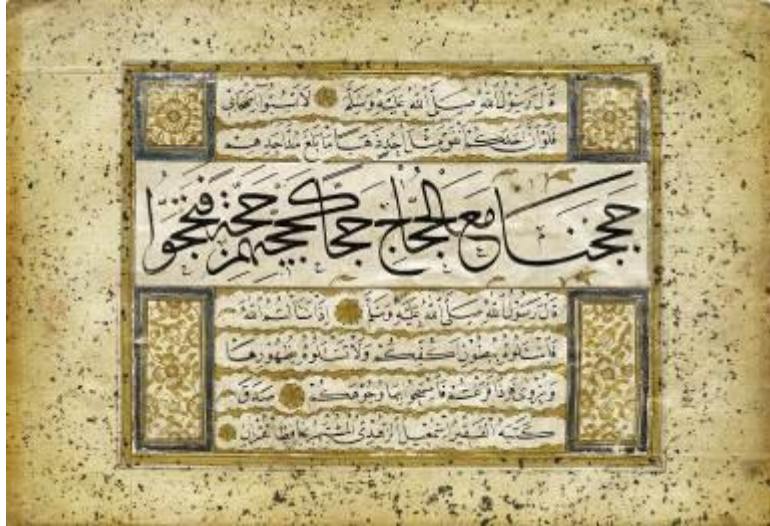 قال رسول الله صلى الله عليه وسلم لا تسبوا أصحابي
فلو أن أحدكم أنفق مثل أحد ذهبا ما بلغ مد أحدهم
حججنا مع الحجاج حجا كحجهم حجة فحجوا
قال رسول الله صلى الله عليه وسلم إذا سألتم الله
فاسألوه ببطون أكفكم ولا تسألوه بظهورها
فامسحوا بها وجوهكم صدق
كتبه الفقير إسمعيل الزهدي